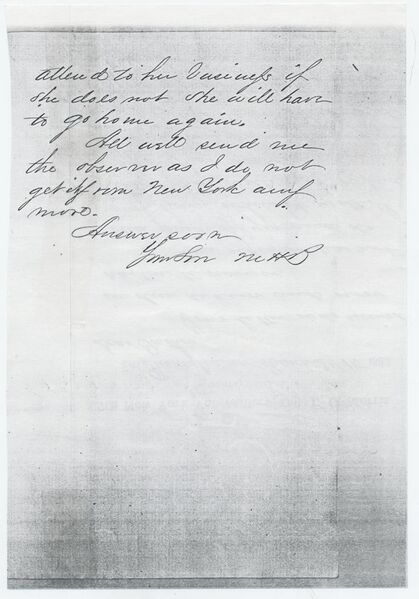 attend to her business if
she does not she will have
to go home again.
All well send me
the observer as I do not
get it from New York any
more.
Answer soon
Your Son M H B